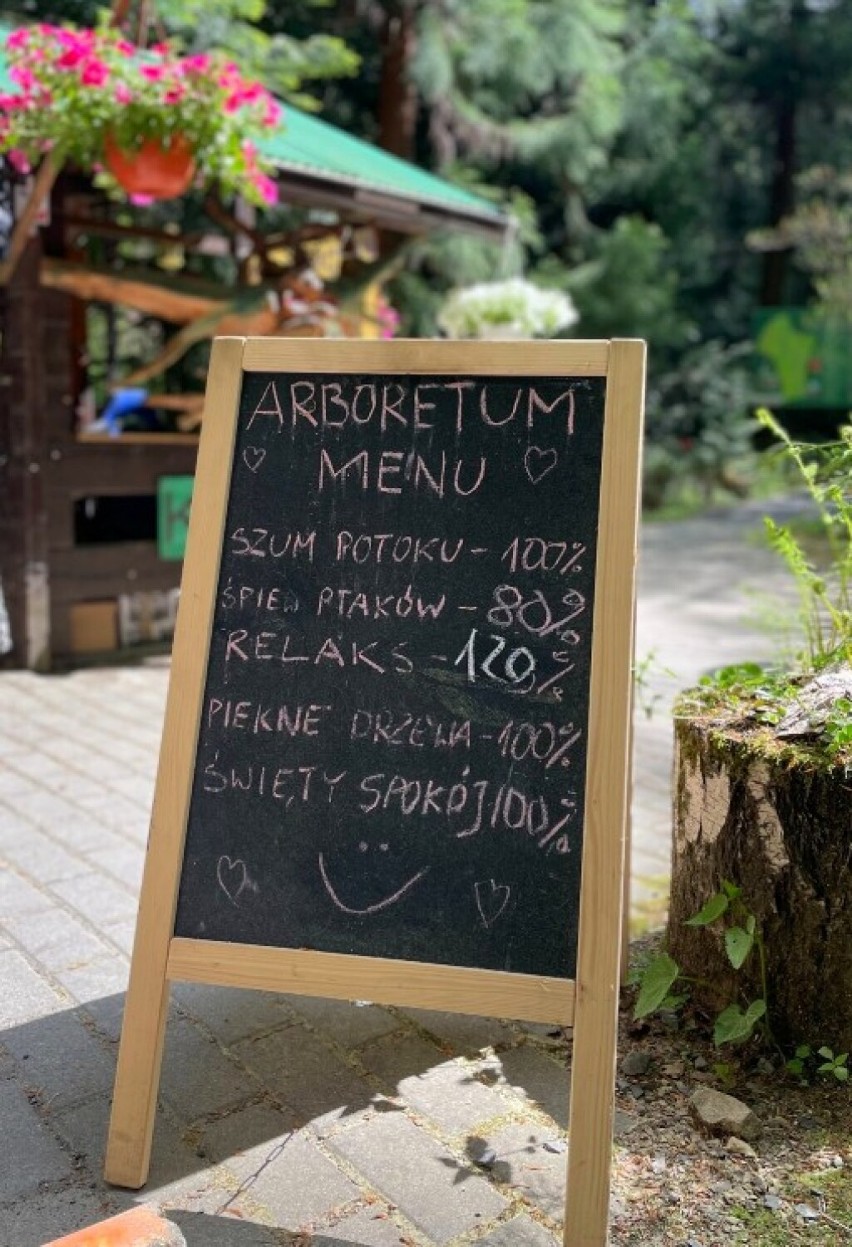 ARBORETUM
MENU
SZUM POTOKU - 100%
ŚPIEW PTAKÓW - 80%
RELAKS - 120%
PIEKNE DRZEWA - 100%
ŚWIĘTY SPOKÓJ 100%
K